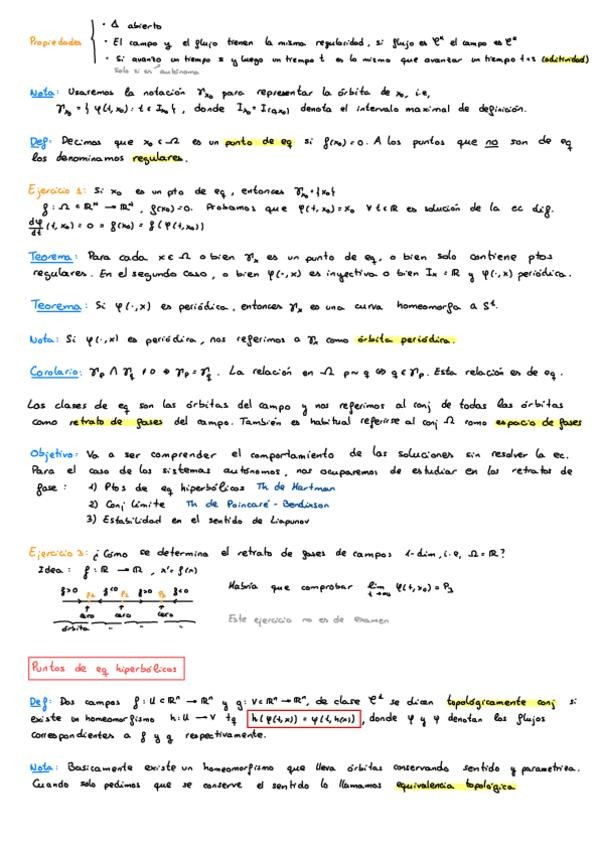 Propiedades
· Δ abierto
· El campo y el flujo tienen la misma regularidad, si flujo es C^k el campo es C^k
· Si avanzo un tiempo s y luego un tiempo t es lo mismo que avanzar un tiempo t+s (aditividad)
Solo si es autónomo
Nota: Usaremos la notación γ_x₀ para representar la órbita de x₀, i.e,
γ_x₀ = { φ(t,x₀) : t ∈ I_x₀ }, donde I_x₀ = I(0,x₀) denota el intervalo maximal de definición.
Def: Decimos que x₀ ∈ Ω es un punto de eq si f(x₀)=0. A los puntos que no son de eq
los denominamos regulares.
Ejercicio 1: Si x₀ es un pto de eq, entonces γ_x₀ = {x₀}
f: Ω ⊂ ℝⁿ → ℝⁿ, f(x₀)=0. Probamos que φ(t,x₀)=x₀ ∀t∈ℝ es solución de la ec dif.
dφ/dt (t,x₀) = 0 = f(x₀) = f(φ(t,x₀))
Teorema: Para cada x∈Ω o bien γ_x es un punto de eq, o bien solo contiene ptos
regulares. En el segundo caso, o bien φ(·,x) es inyectiva o bien I_x = ℝ y φ(·,x) periódica.
Teorema: Si φ(·,x) es periódica, entonces γ_x es una curva homeomorfa a S¹.
Nota: Si φ(·,x) es periódica, nos referimos a γ_x como órbita periódica.
Corolario: γ_p ∩ γ_q ≠ 0 ⇒ γ_p = γ_q. La relación en Ω p~q ⇔ q∈γ_p. Esta relación es de eq.
Las clases de eq son las órbitas del campo y nos referimos al conj de todas las órbitas
como retrato de fases del campo. También es habitual referirse al conj Ω como espacio de fases
Objetivo: Va a ser comprender el comportamiento de las soluciones sin resolver la ec.
Para el caso de los sistemas autónomos, nos ocuparemos de estudiar en los retratos de
fase: 1) Ptos de eq hiperbólicos Th de Hartman
2) Conj límite Th de Poincaré - Bendixson
3) Estabilidad en el sentido de Liapunov
Ejercicio 3: ¿Cómo se determina el retrato de fases de campos 1-dim, i.e, Ω=ℝ?
Idea: f: ℝ → ℝ, x'=f(x)
f>0 P₁ f<0 P₂ f>0 P₃ f<0
cero cero cero
órbita " " "
Habría que comprobar lim t→∞ φ(t,x₀) = P₃
Este ejercicio no es de examen
Puntos de eq hiperbólicos
Def: Dos campos f: U⊂ℝⁿ → ℝⁿ y g: V⊂ℝⁿ → ℝⁿ, de clase C¹ se dicen topológicamente conj si
existe un homeomorfismo h: U → V tq h(φ(t,x)) = ψ(t,h(x)), donde φ y ψ denotan los flujos
correspondientes a f y g respectivamente.
Nota: Basicamente existe un homeomorfismo que lleva órbitas conservando sentido y parametriza.
Cuando solo pedimos que se conserve el sentido lo llamamos equivalencia topológica